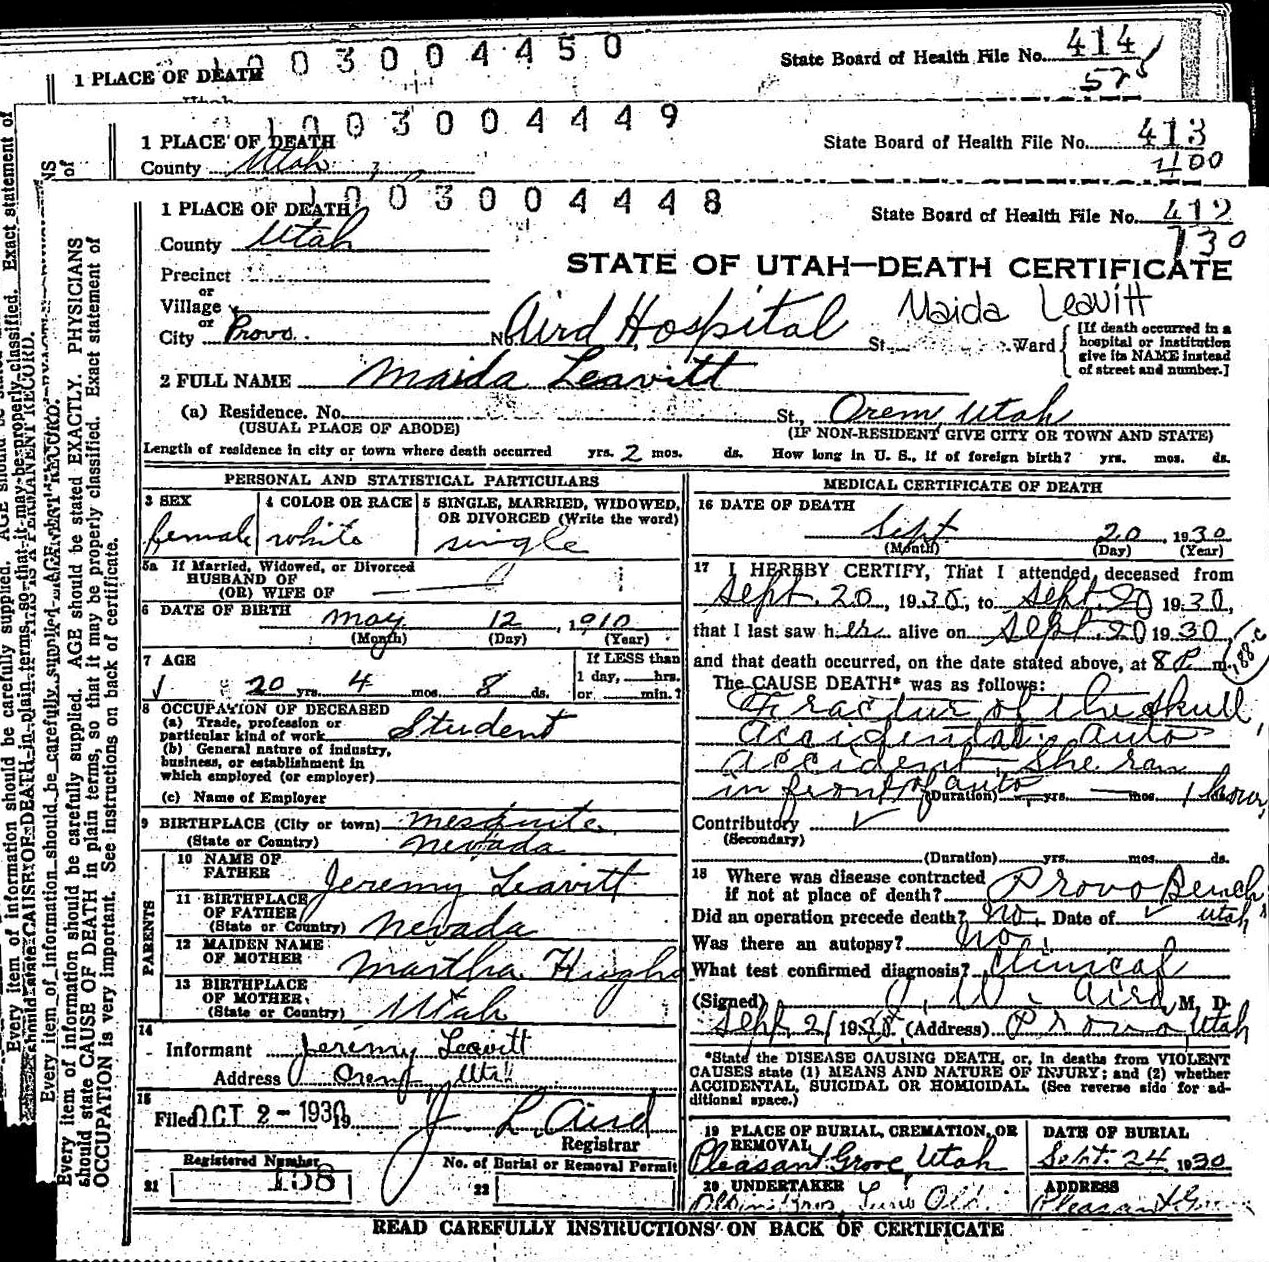 1003004450
State Board of Health File No. 414
525
1 PLACE OF DEATH
1003004449
1 PLACE OF DEATH
State Board of Health File No. 413
1400
County Utah
1003004448
1 PLACE OF DEATH
State Board of Health File No. 412
730
County Utah
STATE OF UTAH—DEATH CERTIFICATE
Precinct
or
Village
Maida Leavitt
or
City Provo. No. Aird Hospital St. Ward
[If death occurred in a
hospital or institution
give its NAME instead
of street and number.]
2 FULL NAME Maida Leavitt
(a) Residence. No. St., Orem Utah
(USUAL PLACE OF ABODE) (IF NON-RESIDENT GIVE CITY OR TOWN AND STATE)
Length of residence in city or town where death occurred yrs. 2 mos. ds. How long in U. S., if of foreign birth? yrs. mos. ds.
PERSONAL AND STATISTICAL PARTICULARS
3 SEX
female
4 COLOR OR RACE
white
5 SINGLE, MARRIED, WIDOWED,
OR DIVORCED (Write the word)
single
5a If Married, Widowed, or Divorced
HUSBAND OF
(OR) WIFE OF
6 DATE OF BIRTH May 12, 1910
(Month) (Day) (Year)
7 AGE
20 yrs. 4 mos. 8 ds.
If LESS than
1 day, hrs.
or min.?
8 OCCUPATION OF DECEASED
(a) Trade, profession or
particular kind of work Student
(b) General nature of industry,
business, or establishment in
which employed (or employer)
(c) Name of Employer
9 BIRTHPLACE (City or town) Mesquite
(State or Country) Nevada
PARENTS
10 NAME OF
FATHER Jeremy Leavitt
11 BIRTHPLACE
OF FATHER
(State or Country) Nevada
12 MAIDEN NAME
OF MOTHER Martha Hughs
13 BIRTHPLACE
OF MOTHER
(State or Country) Utah
14
Informant Jeremy Leavitt
Address Orem Utah
15
Filed OCT 2 - 1930 19 J. L. Aird
Registrar
Registered Number
21 158
No. of Burial or Removal Permit
22
MEDICAL CERTIFICATE OF DEATH
16 DATE OF DEATH
Sept 20, 1930
(Month) (Day) (Year)
17 I HEREBY CERTIFY, That I attended deceased from
Sept. 20, 1930, to Sept. 20 1930,
that I last saw her alive on Sept. 20 1930,
and that death occurred, on the date stated above, at 8 P. m.
188-c
The CAUSE DEATH* was as follows:
Fractur of the skull,
accidental auto
accident she ran
in front of auto
(Duration) yrs. mos. 1 hour ds.
Contributory
(Secondary)
(Duration) yrs. mos. ds.
18 Where was disease contracted
if not at place of death? Provo Bench
Utah
Did an operation precede death? No. Date of
Was there an autopsy? No
What test confirmed diagnosis? Clinical
(Signed) J. W. Aird, M. D.
Sept 21 1930, (Address) Provo Utah
*State the DISEASE CAUSING DEATH, or, in deaths from VIOLENT
CAUSES state (1) MEANS AND NATURE OF INJURY; and (2) whether
ACCIDENTAL, SUICIDAL OR HOMICIDAL. (See reverse side for ad-
ditional space.)
19 PLACE OF BURIAL, CREMATION, OR
REMOVAL
Pleasant Grove, Utah
DATE OF BURIAL
Sept. 24 1930
20 UNDERTAKER
ADDRESS
Pleasant
READ CAREFULLY INSTRUCTIONS ON BACK OF CERTIFICATE
Every item of information should be carefully supplied. AGE should be stated EXACTLY. PHYSICIANS
should state CAUSE OF DEATH in plain terms, so that it may be properly classified. Exact statement of
OCCUPATION is very important. See instructions on back of certificate.